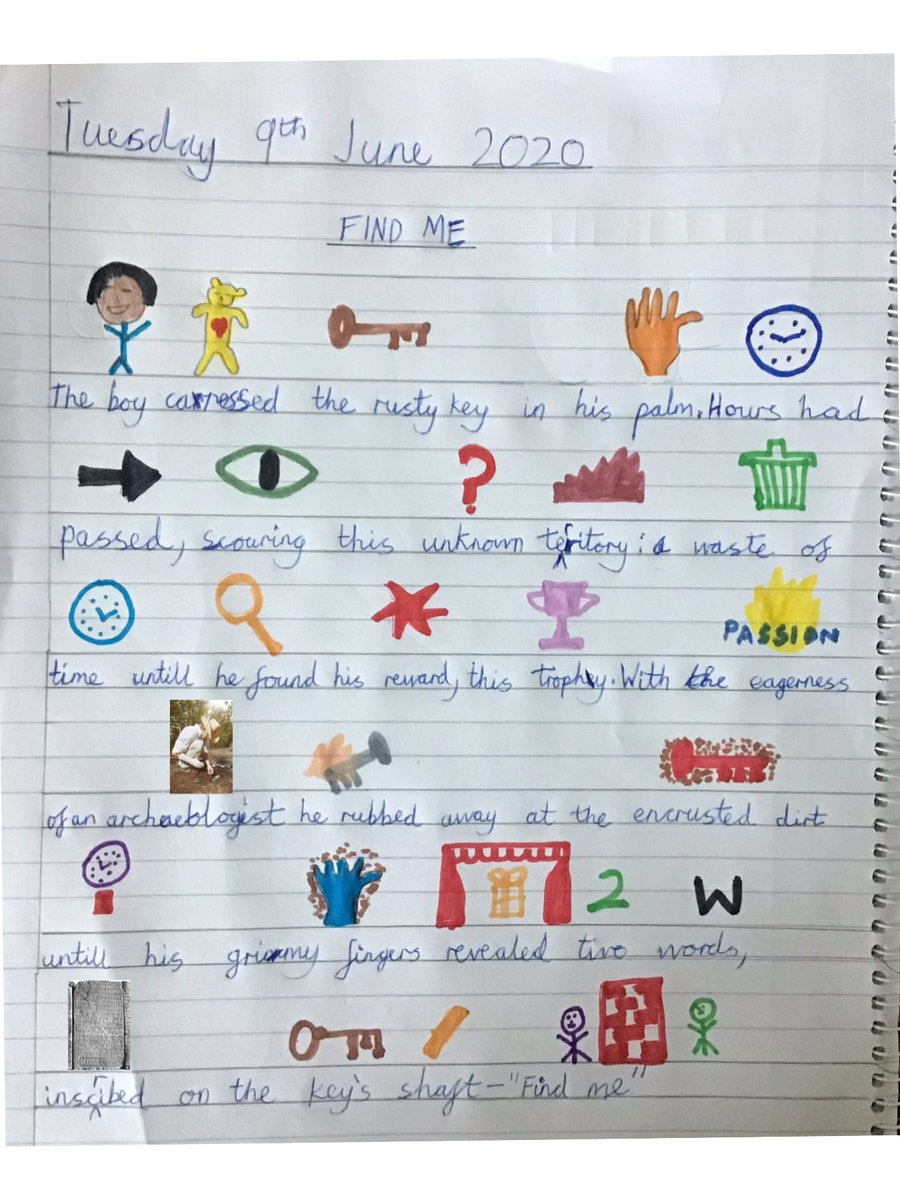 Tuesday 9th June 2020
FIND ME
The boy carressed the rusty key in his palm. Hours had
?
passed, scouring this unknown territory: a waste of
PASSION
time untill he found his reward, this trophy. With the eagerness
of an archaeologist he rubbed away at the encrusted dirt
2 W
untill his grimmy fingers revealed two words,
inscribed on the key's shaft - "Find me"